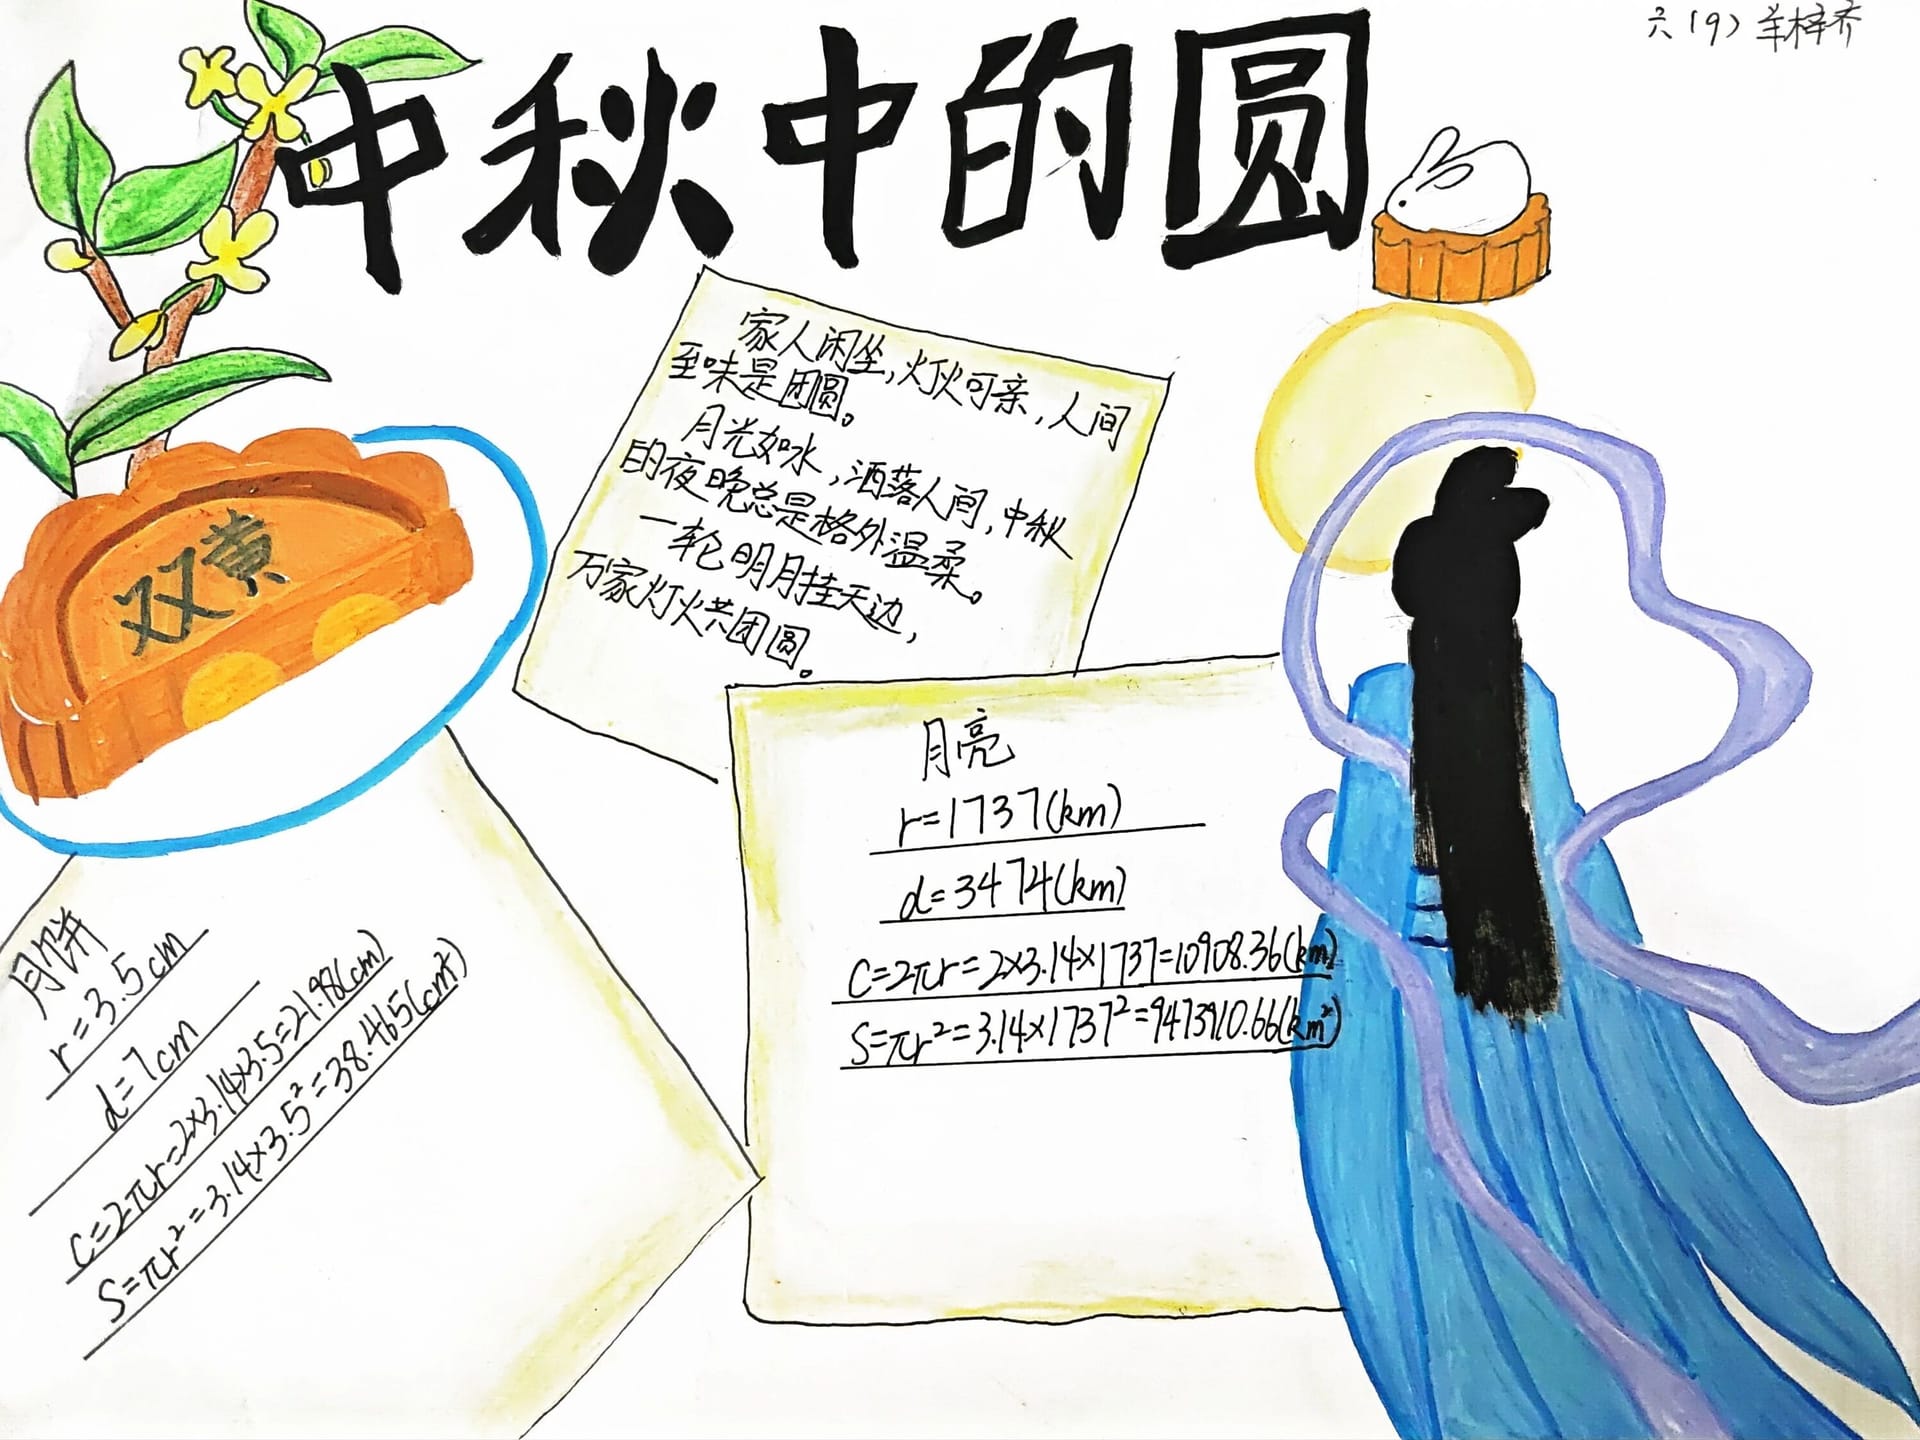 六(9) 羊梓齐
中秋中的圆
家人闲坐，灯火可亲，人间
至味是团圆。
月光如水，洒落人间，中秋
的夜晚总是格外温柔。
一轮明月挂天边，
万家灯火共团圆。
双黄
月饼
r=3.5cm
d=7cm
C=2πr=2×3.14×3.5=21.98(cm)
S=πr²=3.14×3.5²=38.465(cm²)
月亮
r=1737(km)
d=3474(km)
C=2πr=2×3.14×1737=10908.36(km)
S=πr²=3.14×1737²=9473910.66(km²)